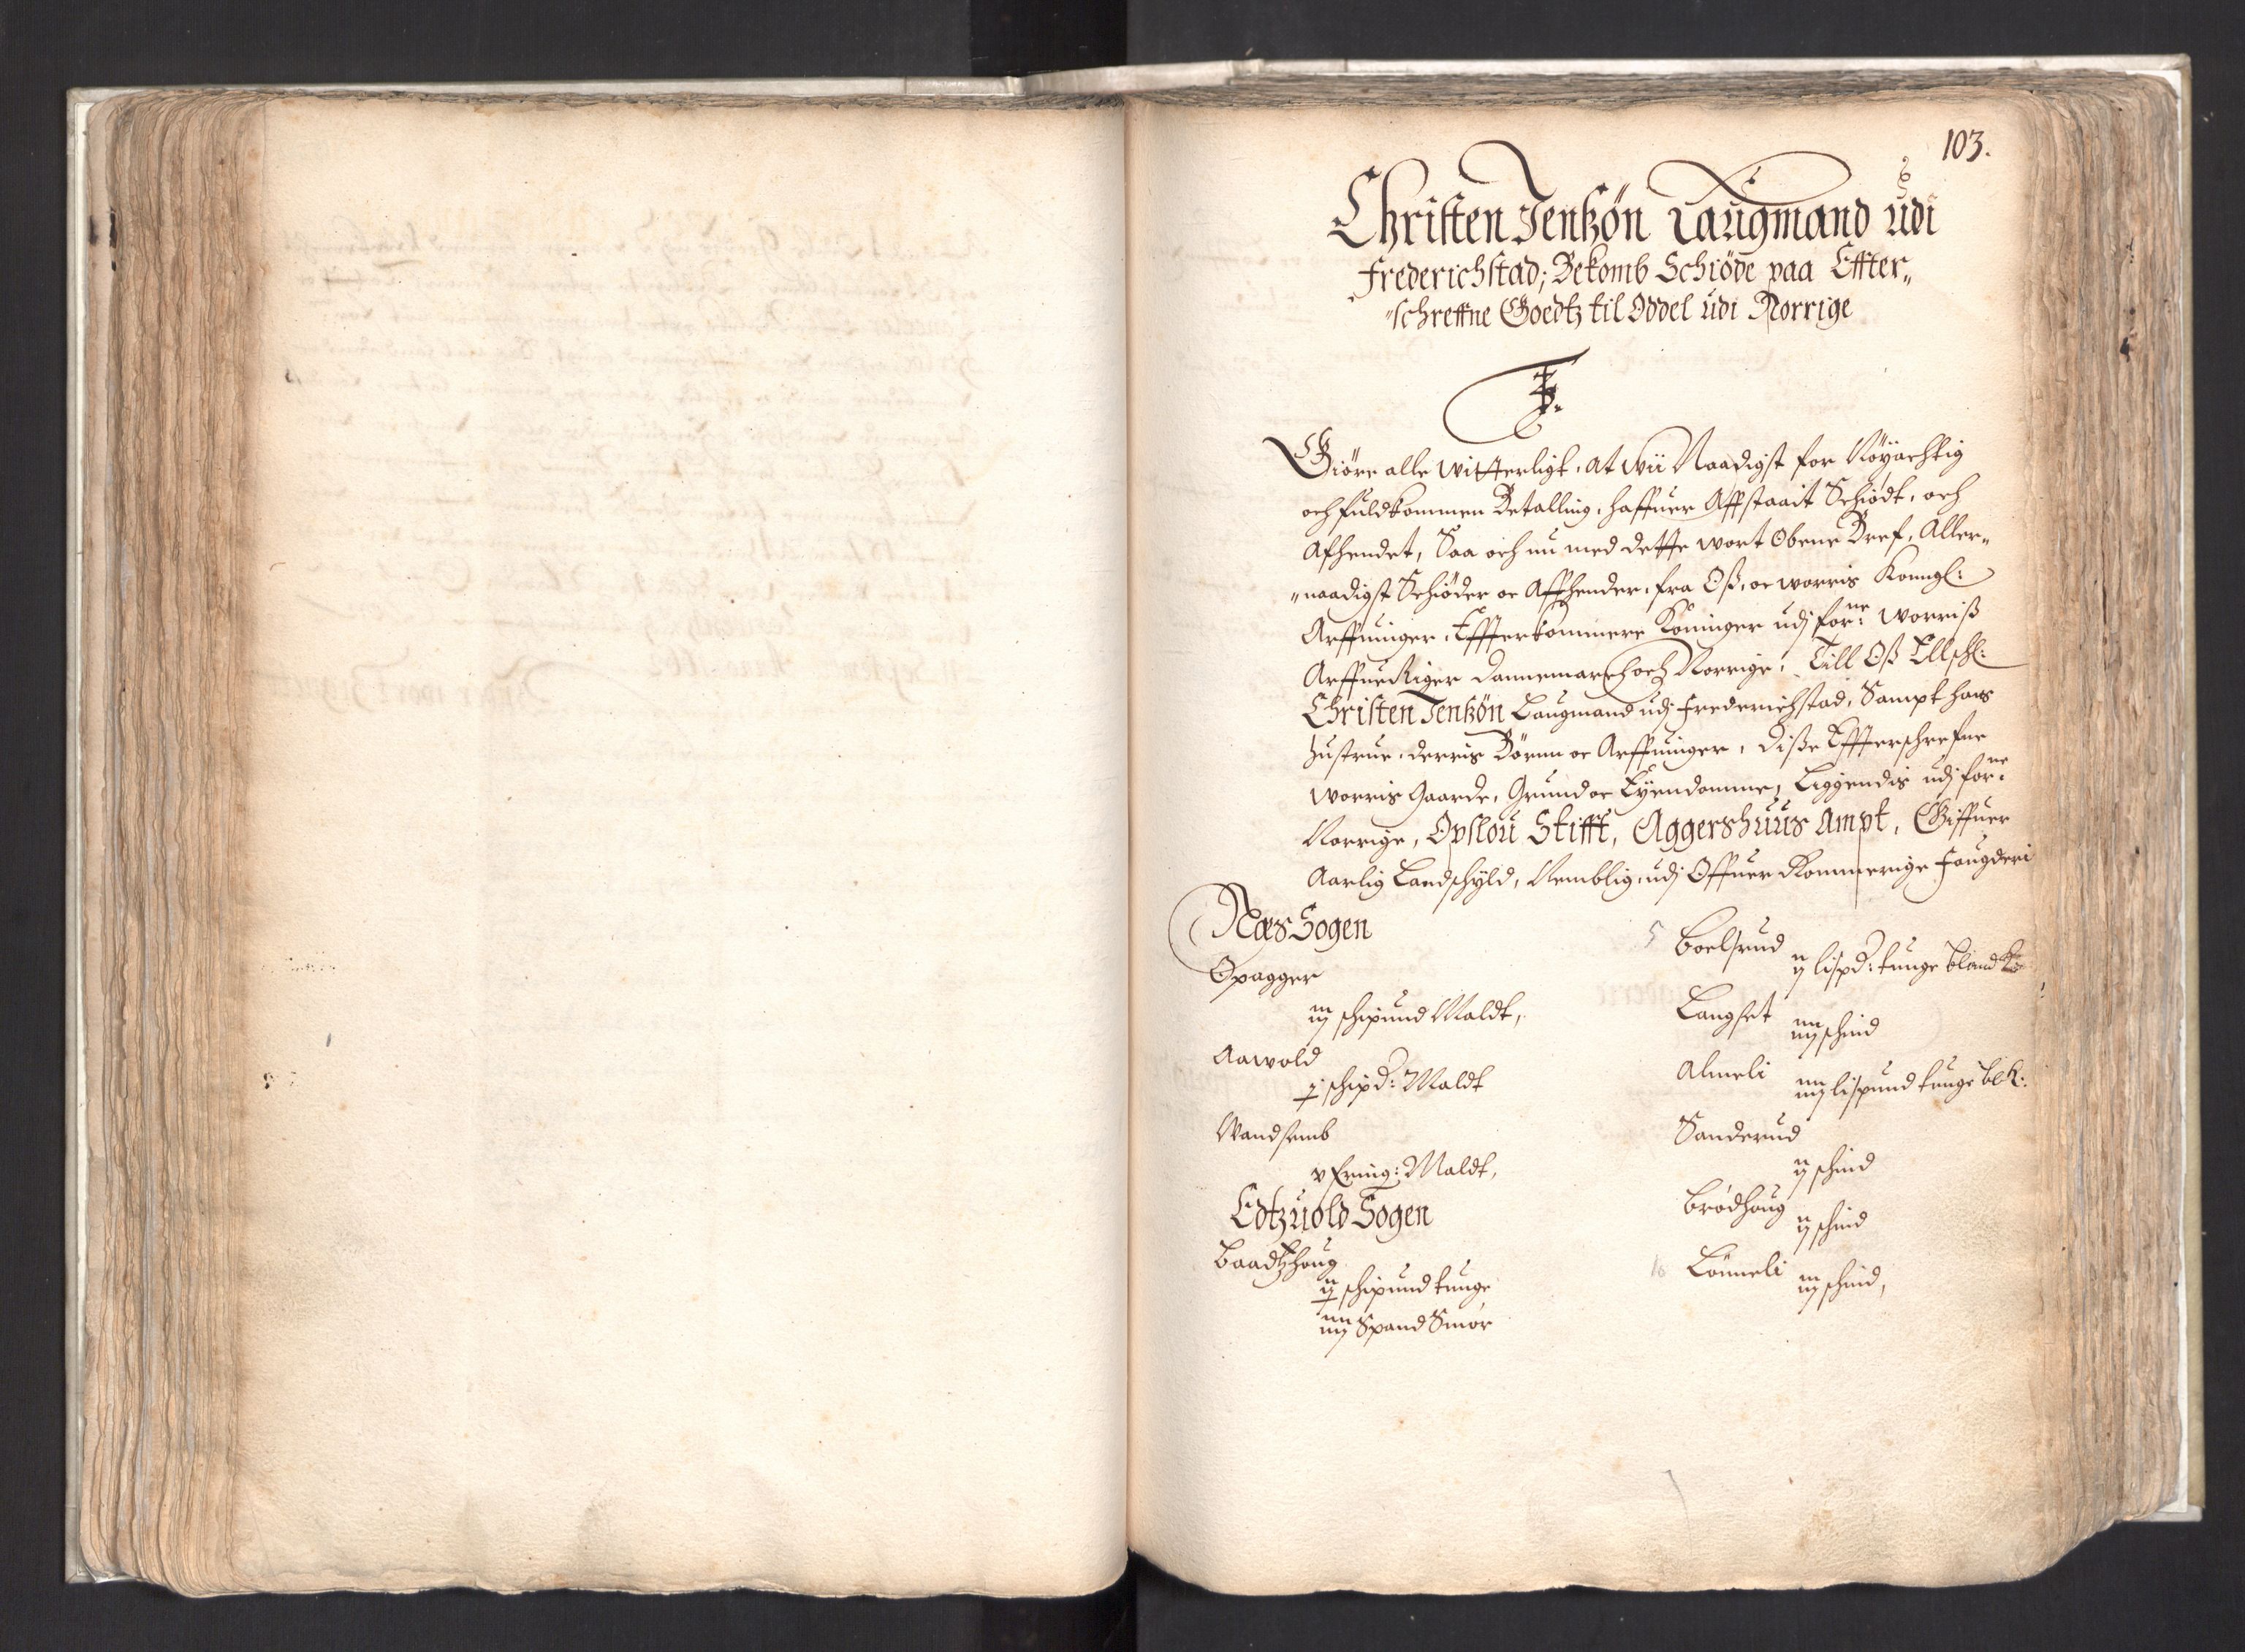 103.
Christen Jenßøn Laugmand udi
Frederichstad; Bekomb Schiøde paa Effter„
„schreffne Goedtz til Oddel udi Norrige
Giöre alle witterligt, at wii Naadigst for Nöÿachtig
och fuldkommen Betalling, haffuer Affstaait Schiødt, och
Afhendet, Saa och nu med dette wort Obene Bref, Aller„
„naadigst Schiøder oc Affhender, fra Oß, oc worris Konngl:
Arffuinger, Effterkommere Koninger udj forne: worriß
ArffueRiger Dannemarch och Norrige, Till Oß Ellschl:
Christen Jenßön Laugmand udj Frederichstad, Sampt hans
Hustrue, derris Börnn oc Arffuinger, Diße Effterschrefne
worris Gaarde, Grund oc Eÿendomme, Liggendis udj forne:
Norrige, Opslou Stifft, Aggershuus Ampt, Giffuer
Aarlig Landschÿld, Nemblig, udj Offuer Rommerige Fougderi
Næs Sogen
Opagger
iij schipund Maldt,
Aawold
j schipd: Maldt
Wandsemb
v Fring: Maldt,
Edtzuold Sogen
Baadtzhoug
ij schipund tunge
iiij Spand Smör
5 Boelsrud
ij lispd: tunge bland Ko
Langset
iiij schind
Almeli
iiij lispund tunge bl K:
Sanderud
ij schind
Brødhoug
ij schind
10 Lönneli
iij schind,